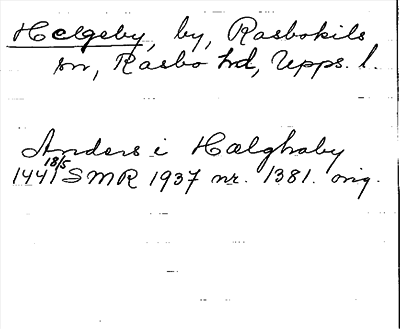 Helgeby, by, Rasbokils
sn, Rasbo hd, Upps. l.
Anders i Hælghaby
1441 18/5 SMR 1937 nr. 1381. orig.